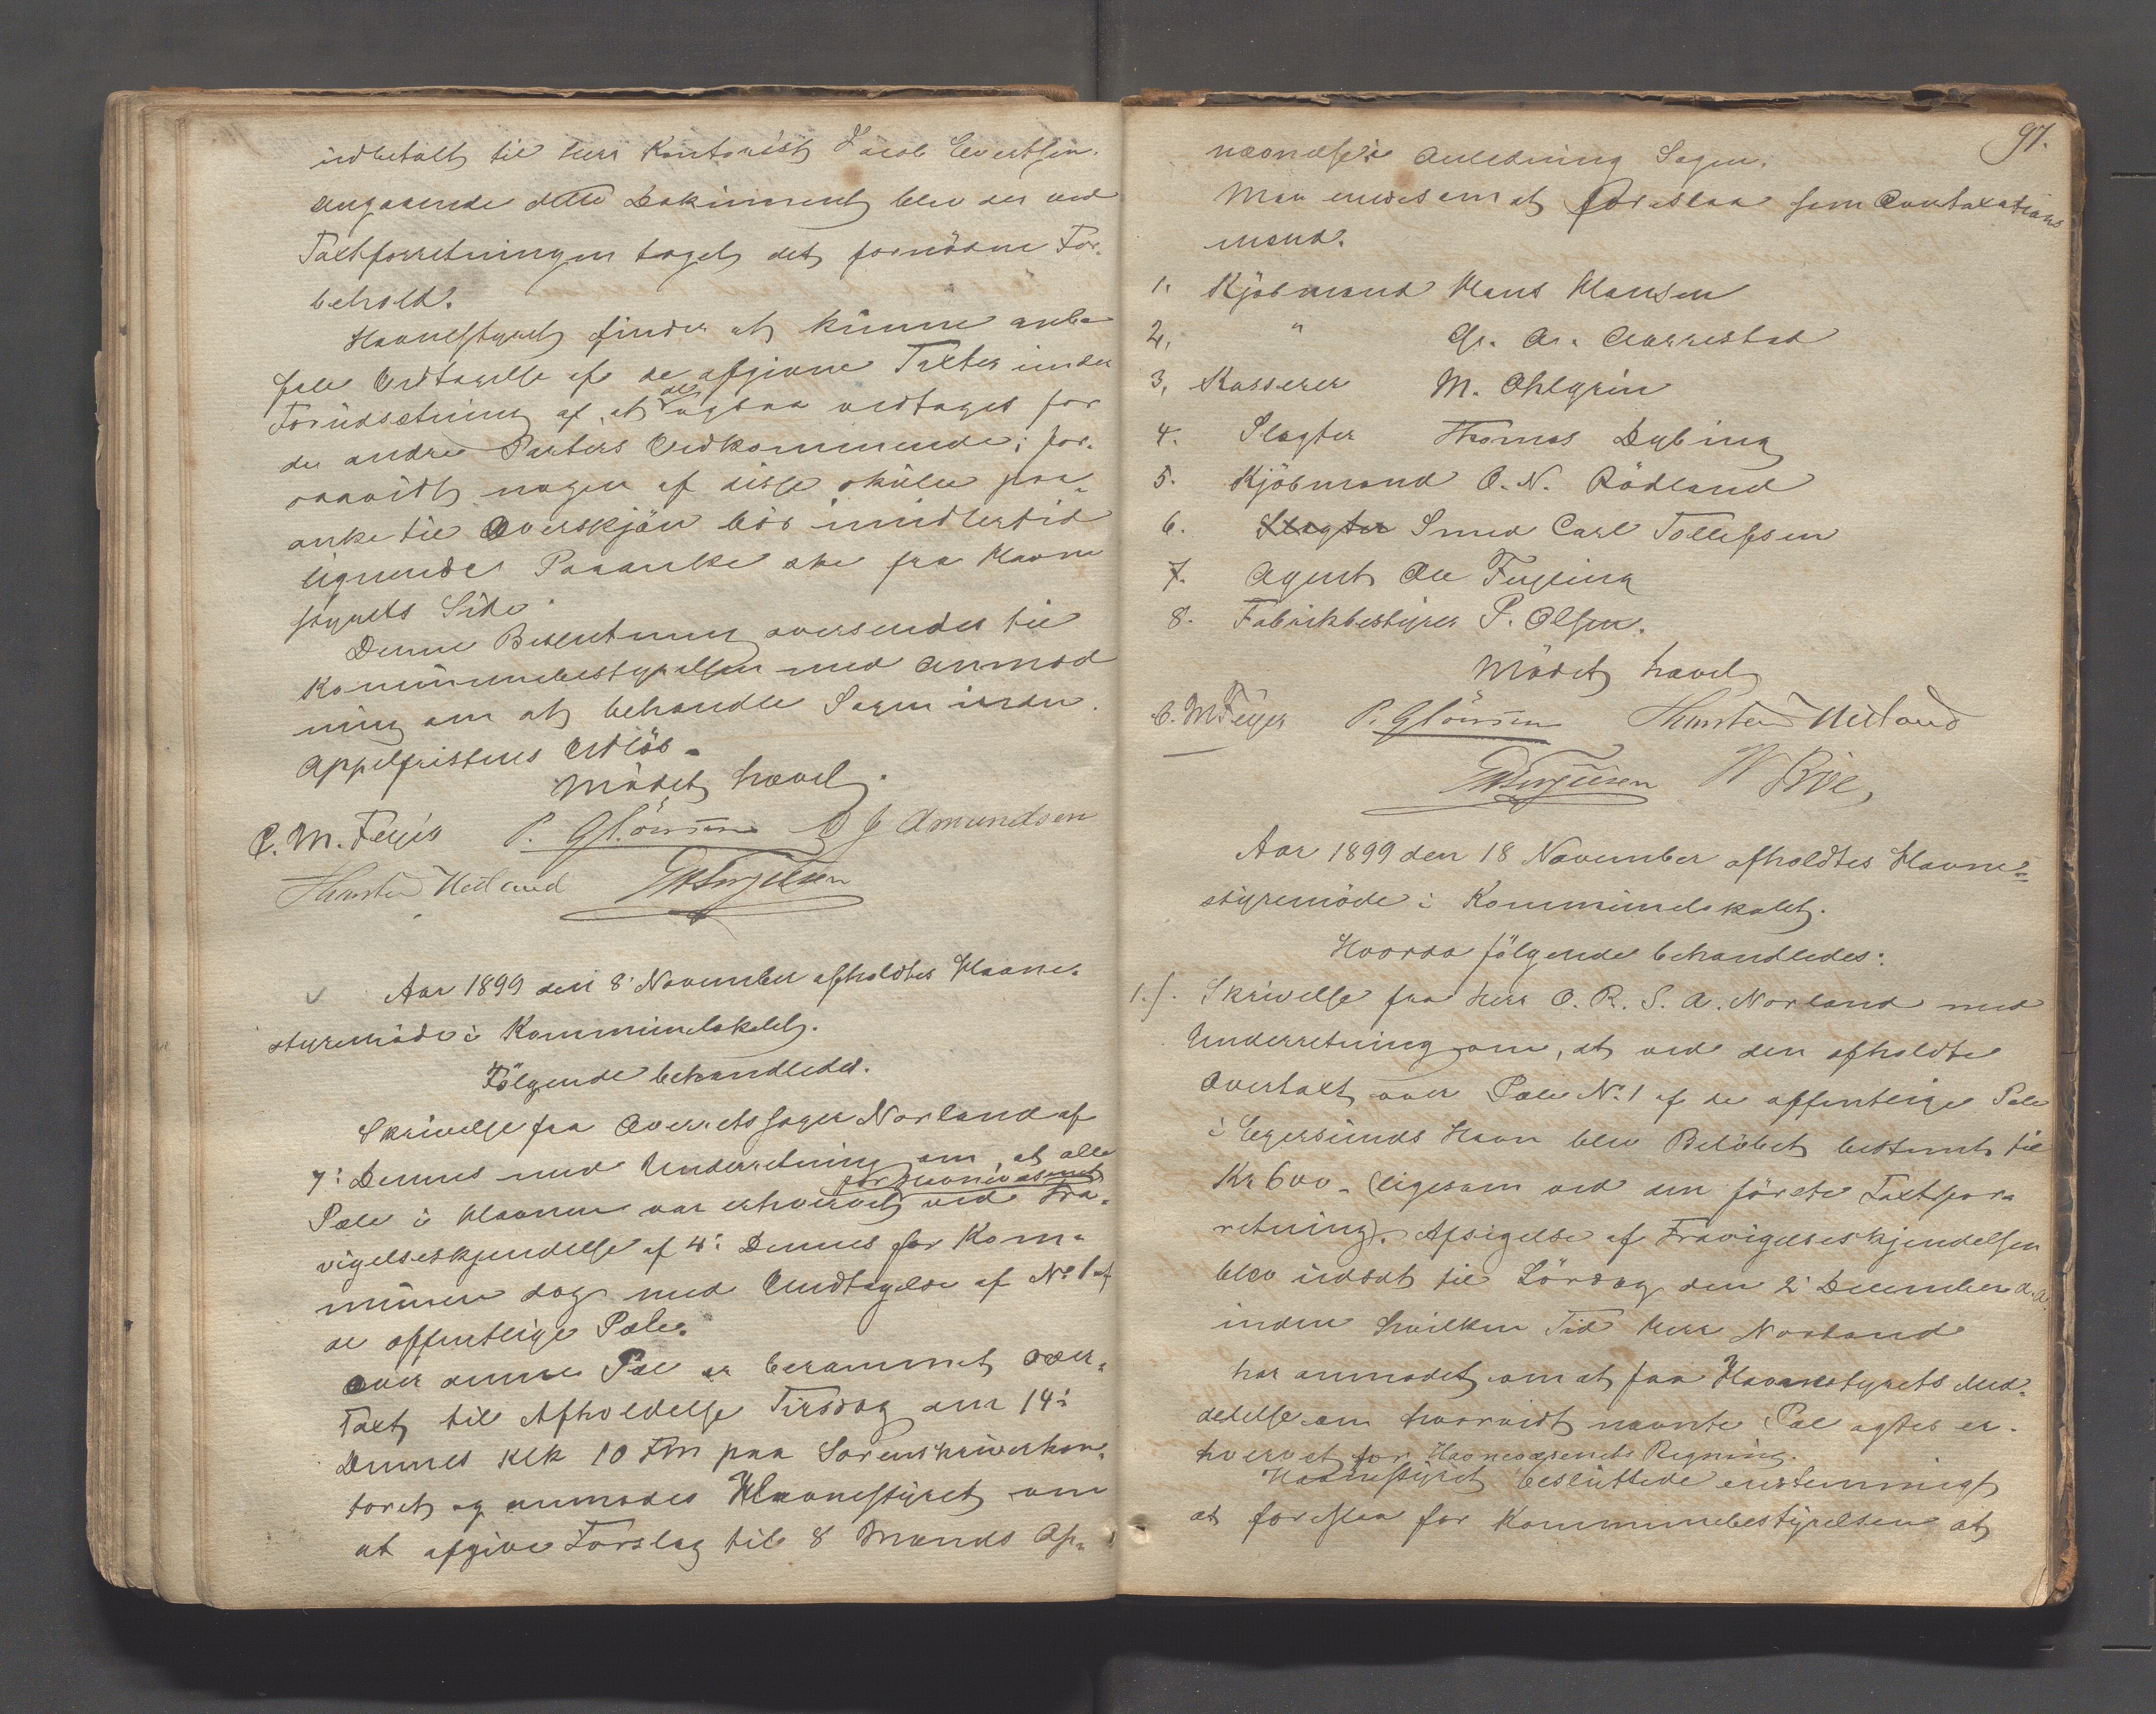 indbetalt til herr Kontorist Jacob Evertsen.
angaaende dette Dokument blev der ved
Taxtforretningen taget det fornödne For-
behold.
Havnestyret finder at kunne anbe
fale Vedtagelse af de afgivne Taxter under
Forudsætning af, at de ogsaa vedtages for
de andre Parters Vedkommende; for-
saavidt nogen af disse skulle paa-
anke til Overskjön bör imidlertid
lignende Paaanke ske fra Havne
styrets Side.
Denne Beslutning oversendes til
Kommunebestyrelsen med Anmod
ning om at behandle Sagen inden
Appelfristens Udlöb.
Mödet hævet.
C. M. Feyer P. Glönsen J Amundsen
Thorsten Hetland
Aar 1899 den 8' November afholdtes Havne-
styremöde i Kommunelokalet.
Fölgende behandledes.
Skrivelse fra Overretssager Norland af
7' Dennes med Underretning om, at alle
for Havnevæsenet
Pæle i Havnen var erhvervet ved Fra-
vigelseskjendelse af 4' Dennes for Kom-
munen dog med Undtagelse af No 1 af
de offentlige Pæle.
Over denne Pæl er berammet Over-
Taxt til Afholdelse Tirsdag den 14'
Dennes Klk 10 Fm paa Sorenskriverkon-
toret og anmodes Havnestyret om
at afgive Forslag til 8 Mænds Op-
97.
nævnelse i Anledning Sagen.
Man enedes om at foreslaa som Overtaxations
mænd.
1. Kjöbmand Hans Hansen
2. " G. A. Aarrestad
3. Kasserer M. Ohlgrin
4. Slagter Thomas Dybing
5. Kjöbmand O. N. Rödland
6. Slagter Smed Carl Tollefsen
7. Agent Ole Fugling
8. Fabrikbestyrer P. Olsen.
Mödet hævet
C. M Feyer P. Glönsen Thorsten Hetland
Aar 1899 den 18 November afholdtes Havne-
styremöde i Kommunelokalet.
Hvorpaa fölgende behandledes:
1.). Skrivelse fra herr O. R. S. A. Norland med
Underretning om, at ved den afholdte
Overtaxt over Pæle No 1 af de offentlige Pæle
i Egersunds Havn blev Belöbet bestemt til
Kr 600 - (ligesom ved den förste Taxtfor-
retning). Afsigelse af Fravigelseskjendelsen
blev udsat til Lördag den 2' December d. a.
inden hvilken Tid Herr Norland
har anmodet om at faa Havnestyrets Med-
delelse om hvorvidt nævnte Pæl agtes er-
hvervet for Havnevæsenets Regning.
Havnestyret besluttede enstemmigt
at foreslaa for Kommunebestyrelsen at